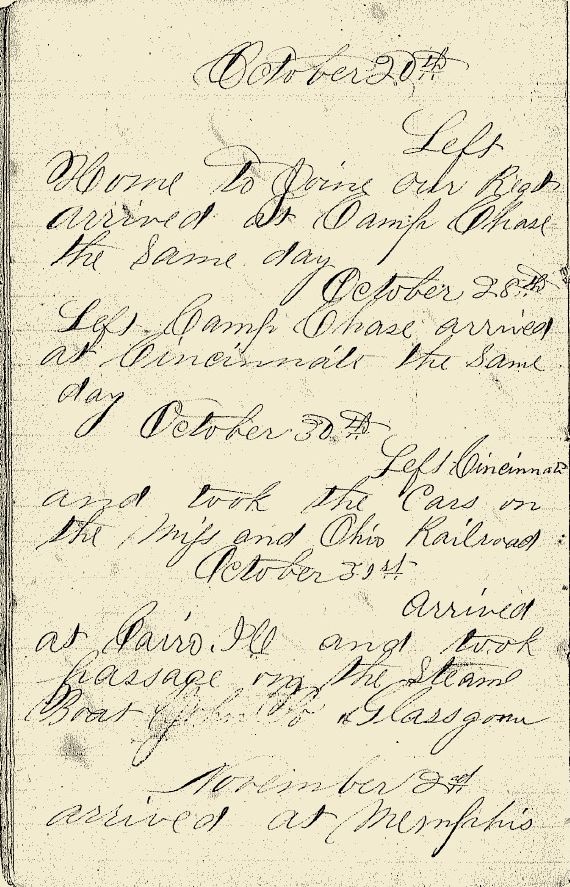 October 20th
Left
Home To Joine our Regt
arrived at Camp Chase
the Same day
October 28th
Left Camp Chase arrived
at Cincinnati the Same
day
October 30th
Left Cincinnati
and took the Cars on
the Miss and Ohio Railroad
October 31st
Arrived
at Cairo. Ill and took
passage on the Steam
Boat John
November 2nd
arrived at Memphis